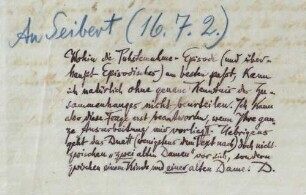 An Seibert (16.7.2.)
Wohin die Episode (und über-
haupt Episodisches) am besten passt, kann
ich natürlich ohne genaue Kenntnis des Zu-
sammenhanges nicht beurteilen. Ich kann
aber diese Frage erst beantworten, wenn Ihre gan-
ze Ausarbeitung mir vorliegt. Uebrigens
geht das Duett (wenigstens dem Text nach) doch nicht
zwischen "zwei alten Damen" vor sich, sondern
zwischen einem Kinde und einer alten Dame. D.